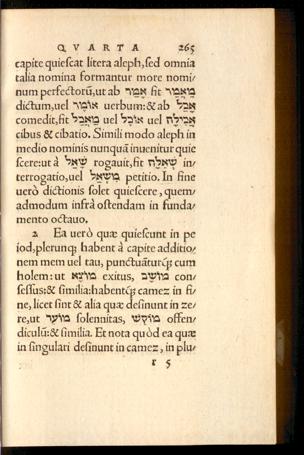 QVARTA 265
capite quiescat litera aleph, sed omnia
talia nomina formantur more nomi⸗
num perfectorũ, ut ab אָמַר fit מַאֲמָר
dictum, uel אוֹמֶר uerbum: & ab אָכַל
comedit, fit מַאֲכָל uel אוֹכֶל uel אֲכִילָה
cibus & cibatio. Simili modo aleph in
medio nominis nunquã inuenitur quie
scere: ut à שָׁאַל rogauit, fit שְׁאֵלָה in⸗
terrogatio, uel מִשְׁאָל petitio. In fine
uerò dictionis solet quiescere, quem⸗
admodum infrà ostendam in funda⸗
mento octauo.
2 Ea uerò quæ quiescunt in pe
iod, plerunq; habent à capite additio⸗
nem mem uel tau, punctuãturq́; cum
holem: ut מוֹצָא exitus, מוֹשָׁב con⸗
sessus: & similia: habentq́; camez in fi⸗
ne, licet sint & alia quæ desinunt in ze⸗
re, ut מוֹעֵד solennitas, מוֹקֵשׁ offen⸗
diculũ: & similia. Et nota quòd ea quæ
in singulari desinunt in camez, in plu⸗
r 5